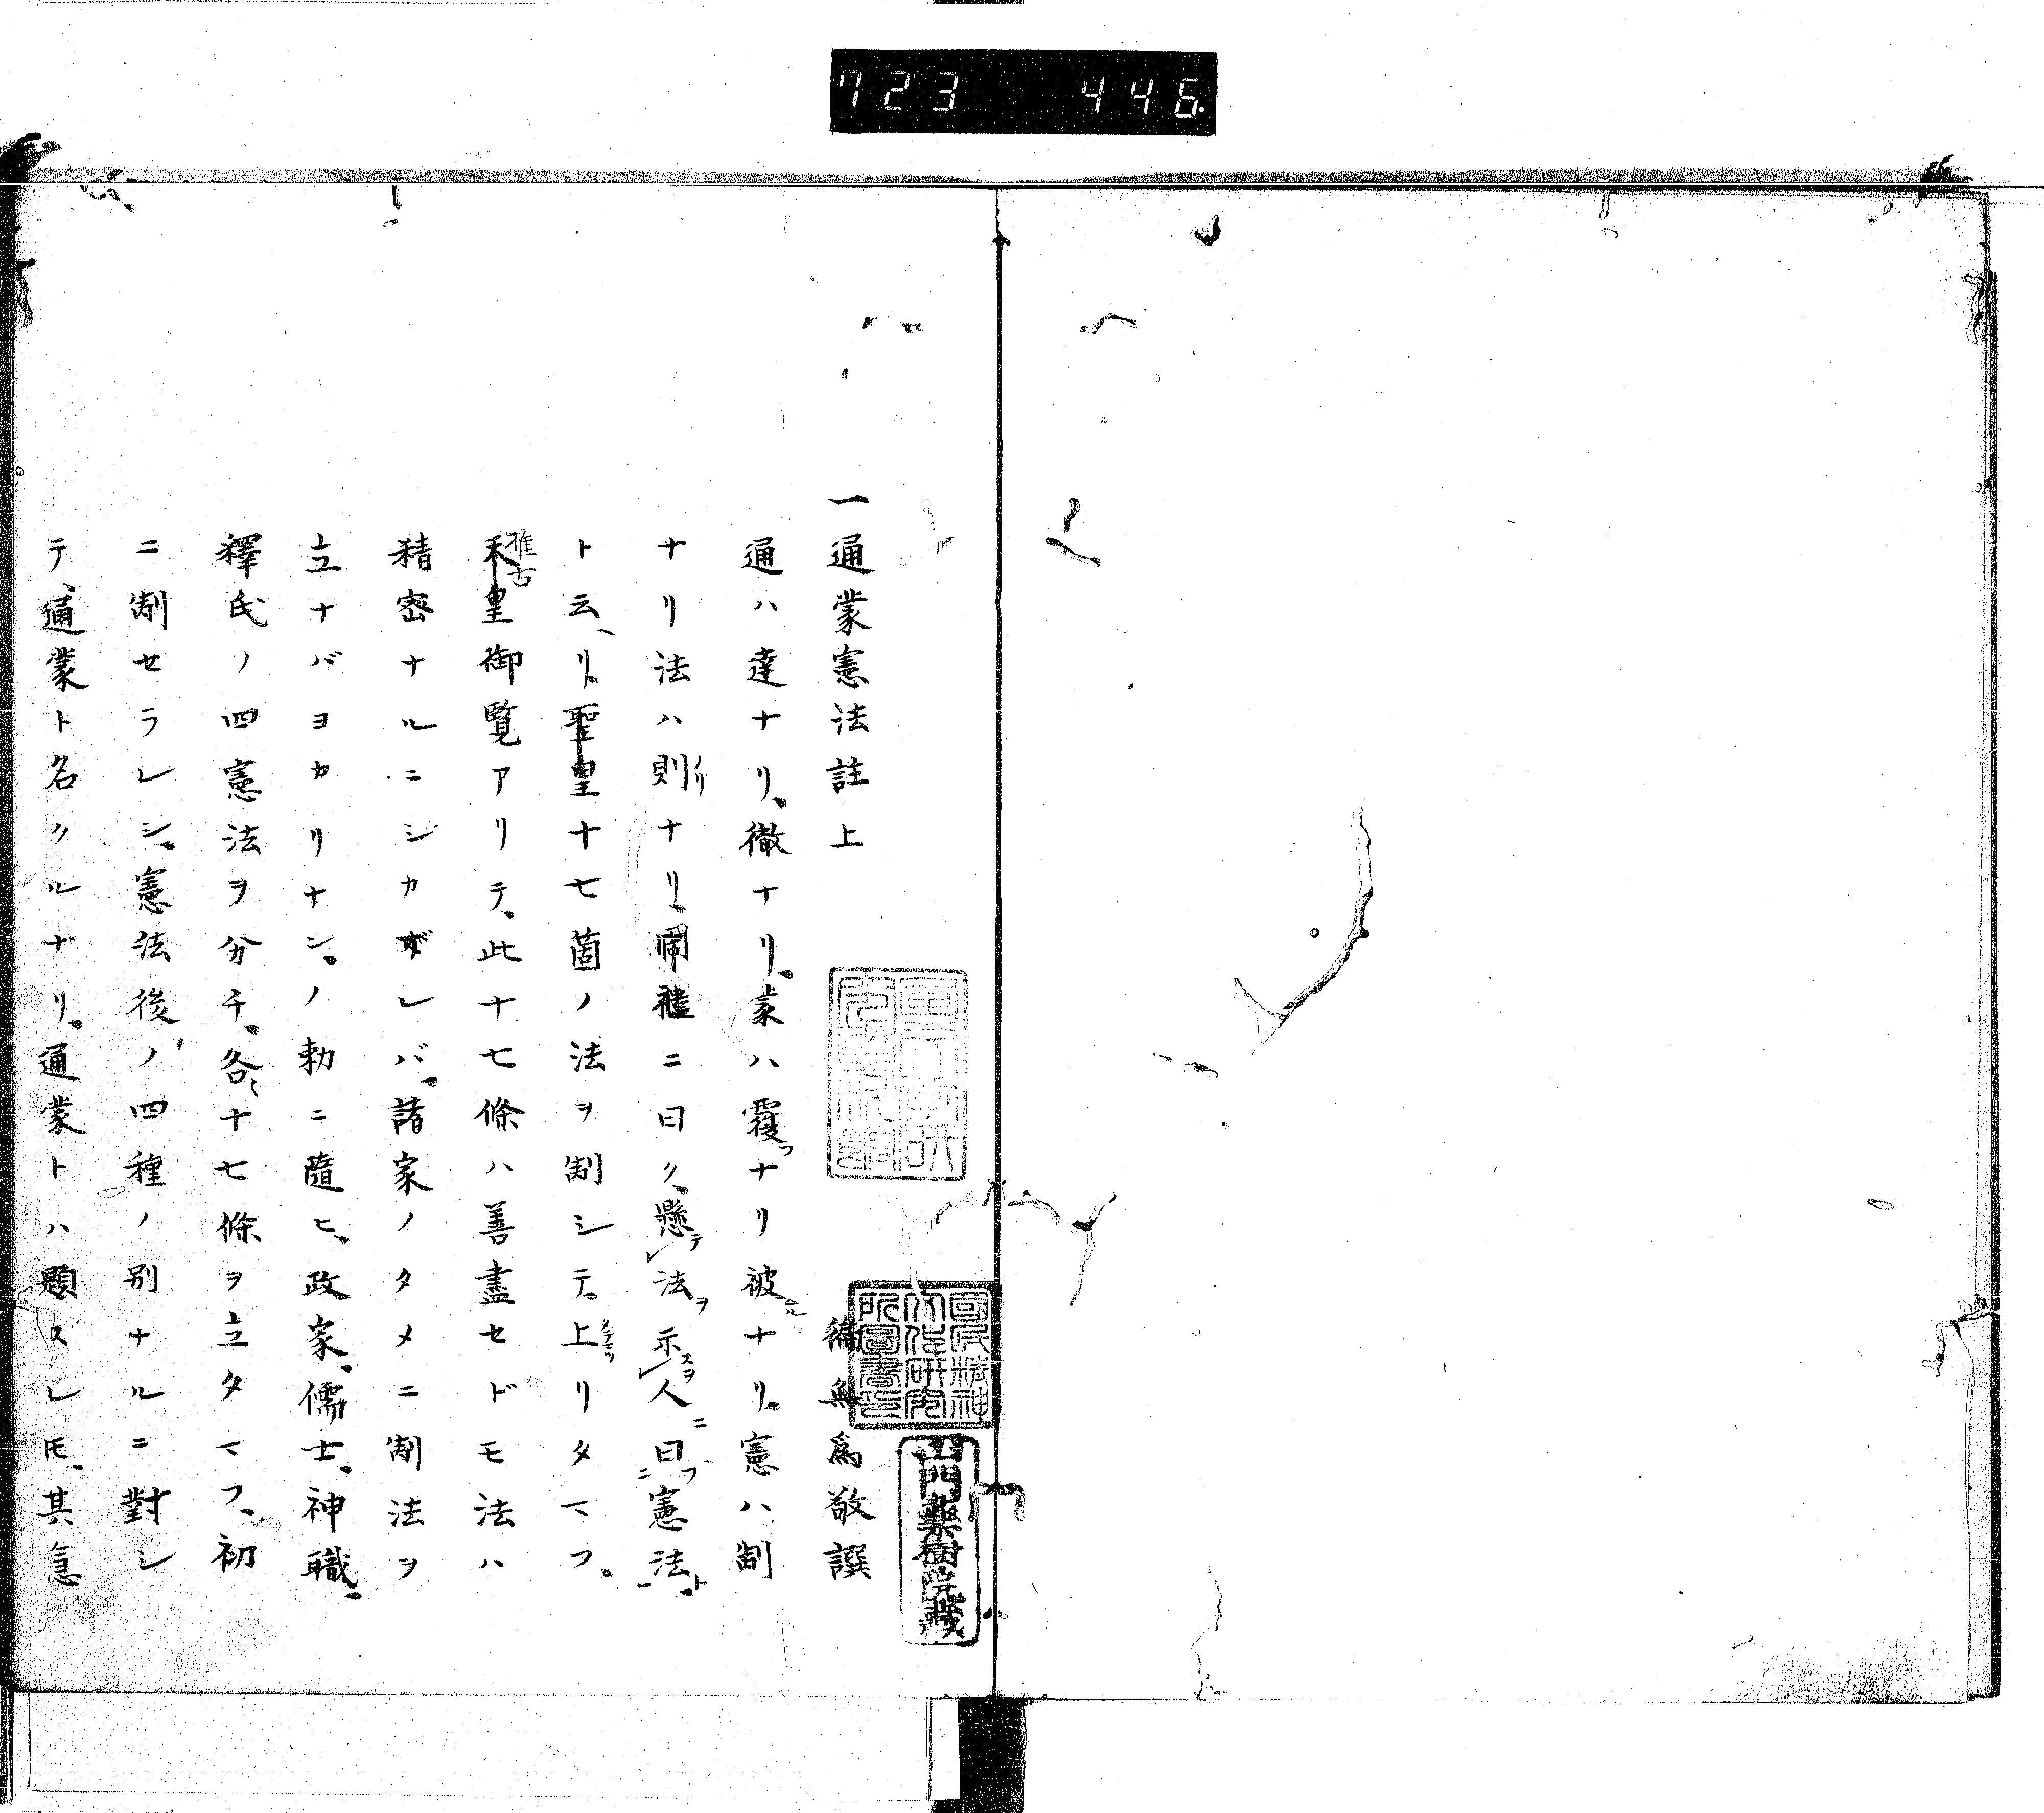 723 446
一通蒙憲法註上
徧無爲敬譔
通ハ達ナリ、徹ナリ、蒙ハ覆ナリ被ナリ、憲ハ制
ナリ法ハ則ナリ、ニ曰ク、懸テ法ヲ示スヲ人ニ曰フ憲法ト
ト云ヘリ、聖皇十七箇ノ法ヲ制シテ、上リタマフ、
推古
天皇御覽アリテ、此十七條ハ善盡セドモ法ハ
精密ナルニシカザレバ、諸家ノタメニ制法ヲ
立ナバヨカリナン、ノ勅ニ隨ヒ、政家、儒士、神職、
釋氏ノ四憲法ヲ分チ、各〻十七條ヲ立タマフ、初
ニ制セラレシ、憲法後ノ四種ノ別ナルニ對シ
テ、通蒙ト名クルナリ、通蒙トハ題スレ𪜈、其急
國民精神文化研究所圖書印
山門藥樹院藏